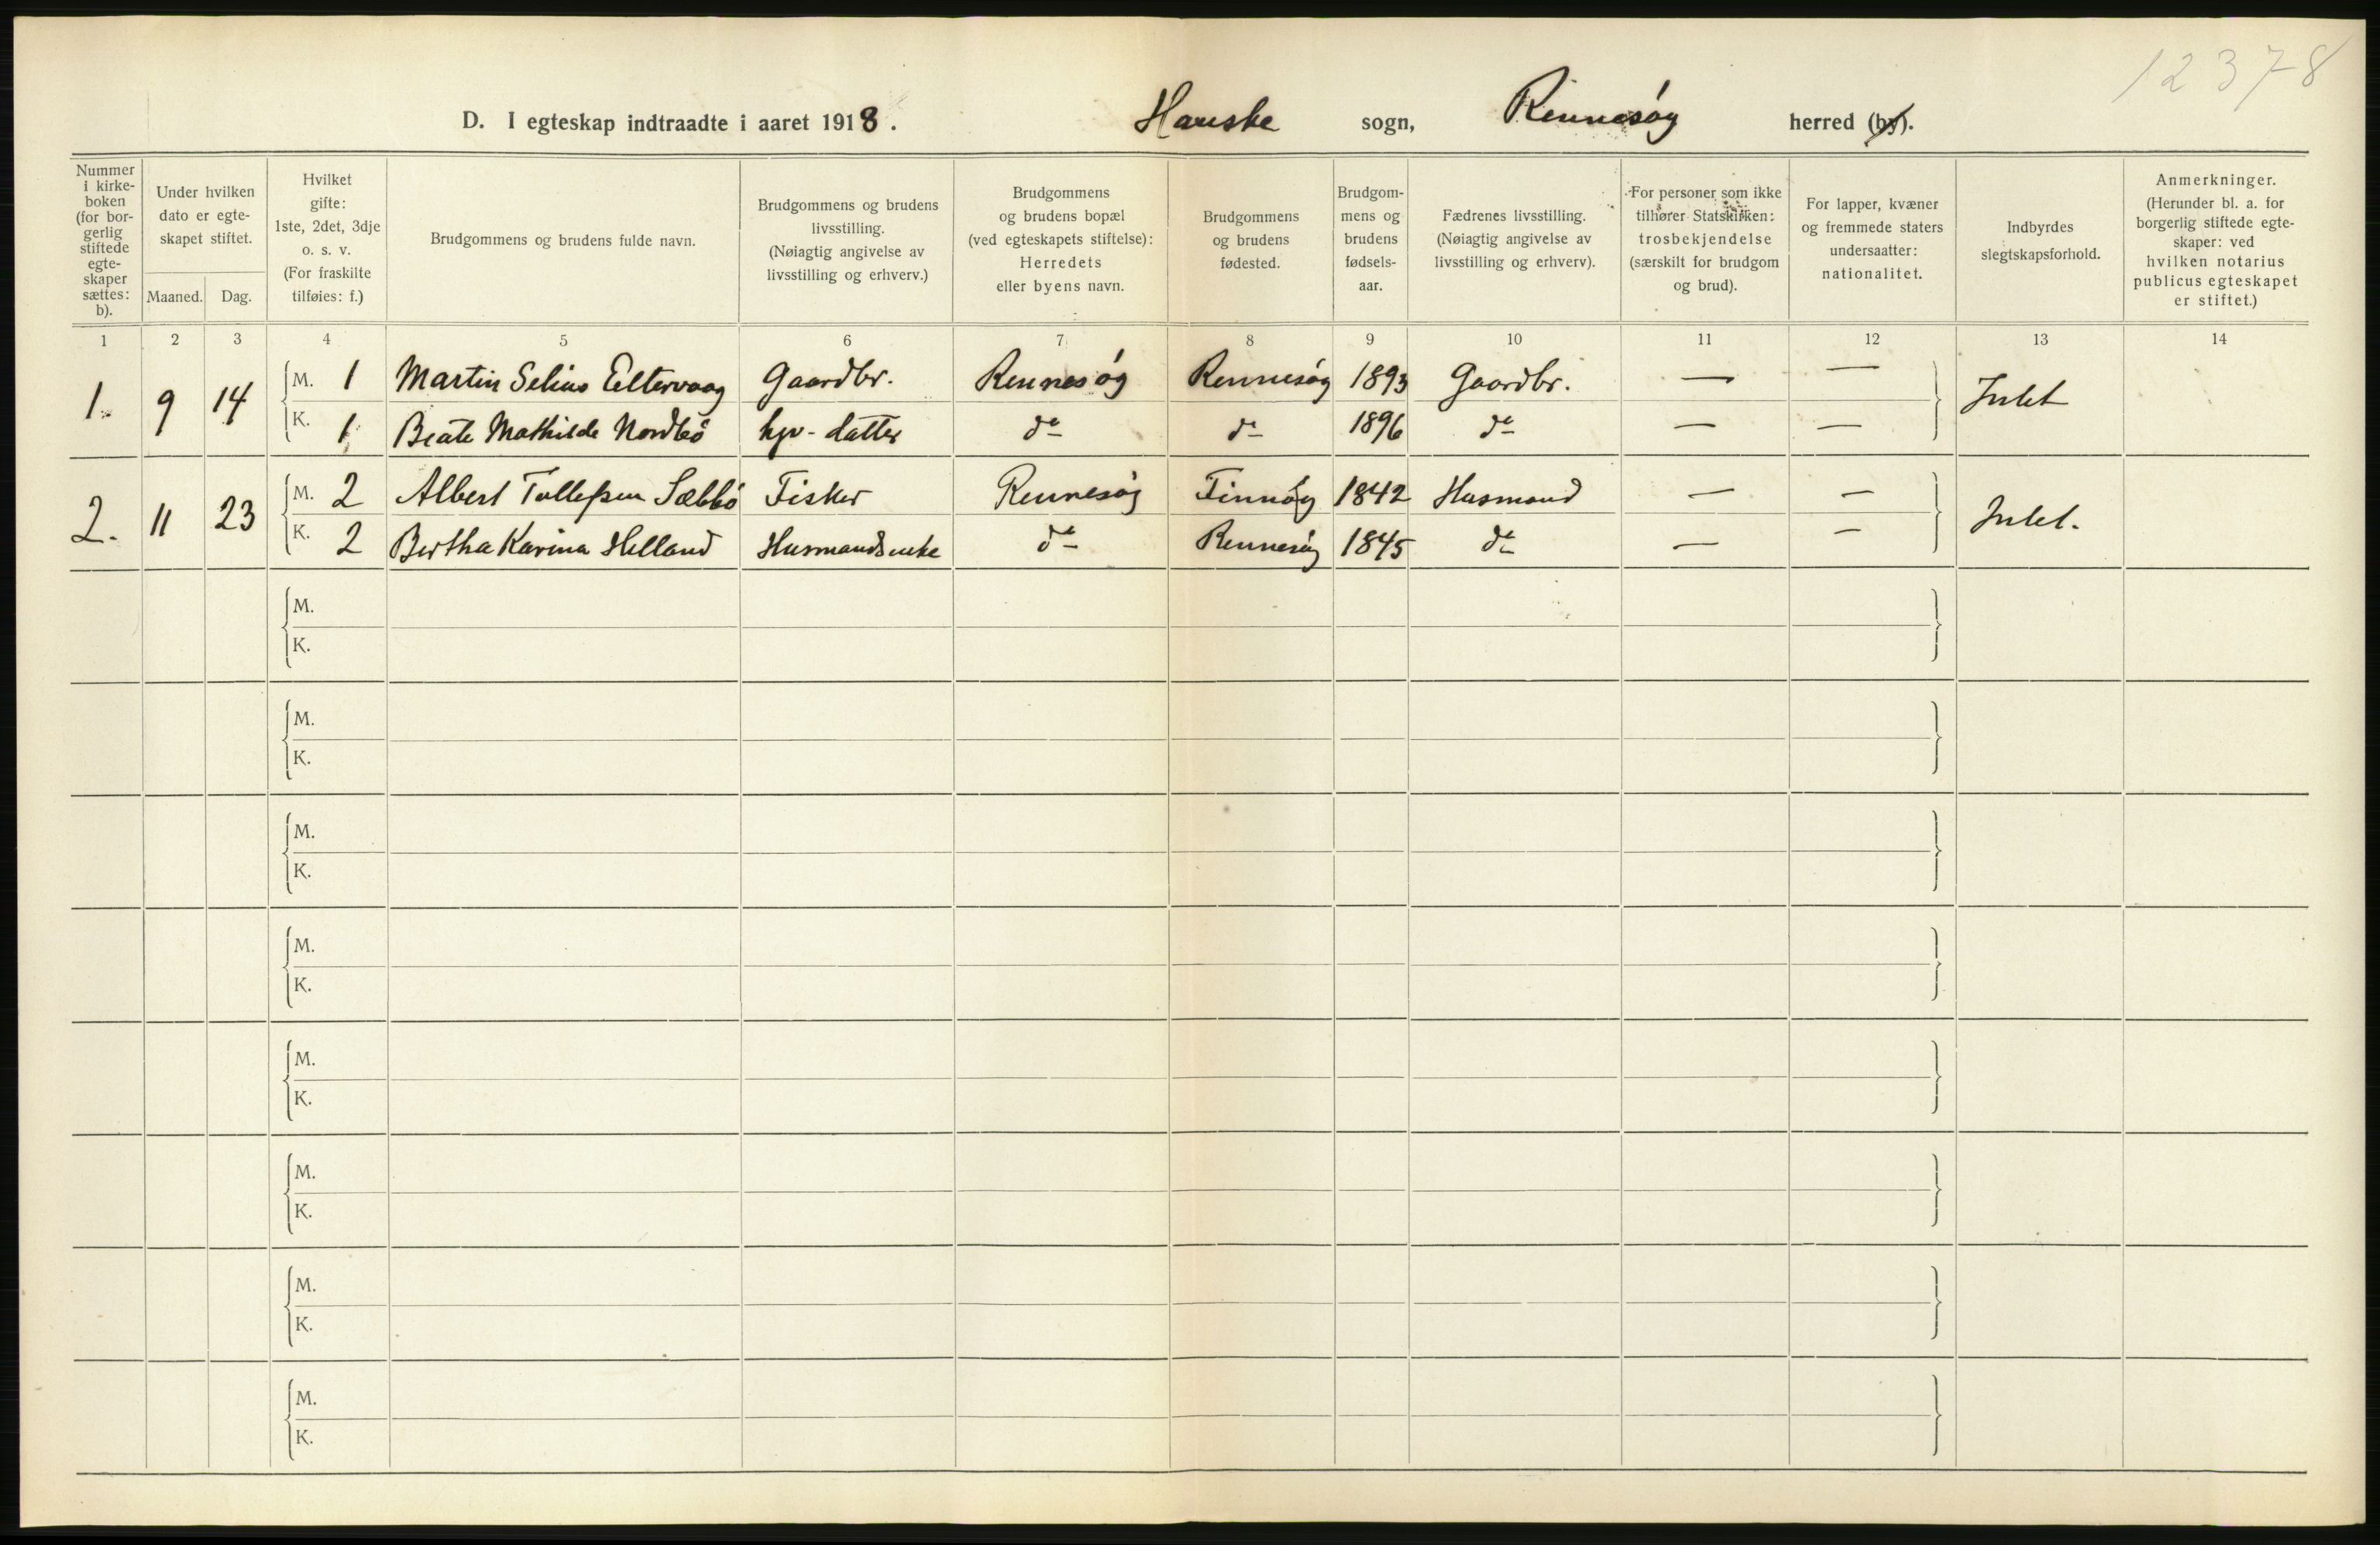 12378
D. I egteskap indtraadte i aaret 1918. Hauske sogn, Rennesøy herred (by).
Nummer i kirke-boken (for bor-gerlig stiftede egte-skaper sættes: b).
Under hvilken dato er egte-skapet stiftet.
Maaned. Dag.
Hvilket gifte: 1ste, 2det, 3dje o. s. v. (For fraskilte tilføies: f.)
Brudgommens og brudens fulde navn.
Brudgommens og brudens livsstilling. (Nøiagtig angivelse av livsstilling og erhverv.)
Brudgommens og brudens bopæl (ved egteskapets stiftelse): Herredets eller byens navn.
Brudgommens og brudens fødested.
Brudgom-mens og brudens fødsels-aar.
Fædrenes livsstilling. (Nøiagtig angivelse av livsstilling og erhverv).
For personer som ikke tilhører Statskirken: trosbekjendelse (særskilt for brudgom og brud).
For lapper, kvæner og fremmede staters undersaatter: nationalitet.
Indbyrdes slegtskapsforhold.
Anmerkninger. (Herunder bl. a. for borgerlig stiftede egte-skaper: ved hvilken notarius publicus egteskapet er stiftet.)
1 2 3 4 5 6 7 8 9 10 11 12 13 14
1. 9 14 M. 1 Martin Selius Eltervaag Gaardbr. Rennesøy Rennesøy 1893 Gaardbr. — — Intet
K. 1 Beate Mathilde Nordbö hjv-datter do do 1896 do — —
2. 11 23 M. 2 Albert Tollefsen Sæbbö Fisker Rennesøy Finnøy 1842 Husmand — — Intet.
K. 2 Bertha Karina Helland Husmandsenke do Rennesøy 1845 do — —
M.
K.
M.
K.
M.
K.
M.
K.
M.
K.
M.
K.
M.
K.
M.
K.